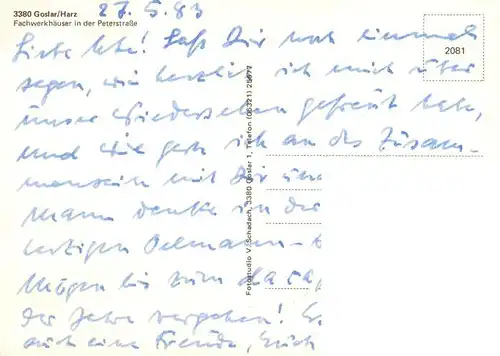 3380 Goslar/Harz
Fachwerkhäuser in der Peterstraße
27.5.83
2081
Liebe! Laß Dir noch einmal
sagen, wie herzlich ich mich über
unser Wiedersehen gefreut habe,
und wie gern ich an das Zusam-
mensein mit Dir
Mann denke
Mögen bis zum
der Jahre vergehen!
auch eine Freude, Euch
Fotostudio V. Schadach, 3380 Goslar 1, Telefon (05321)